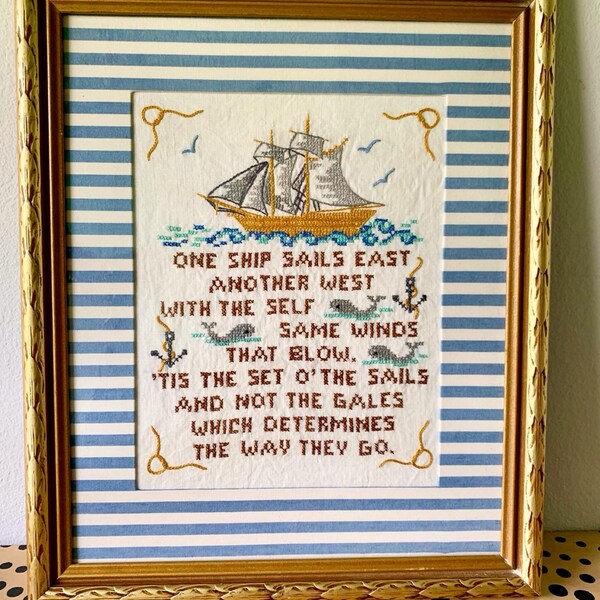 ONE SHIP SAILS EAST
ANOTHER WEST
WITH THE SELF
SAME WINDS
THAT BLOW.
'TIS THE SET O'THE SAILS
AND NOT THE GALES
WHICH DETERMINES
THE WAY THEY GO.